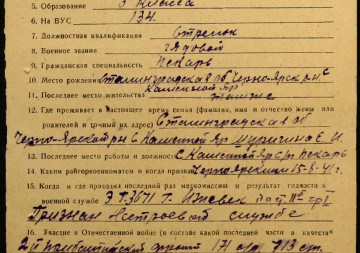 5. Образование 3 класса
6. На ВУС 134.
7. Должностная квалификация Стрелок
8. Военное звание рядовой
9. Гражданская специальность пекарь
10. Место рождения Сталинградская об. Черноярск. р-н с.
Каменный Яр
11. Последнее место жительства
12. Где проживает в настоящее время семья (фамилия, имя и отчество жены или
родителей и точный их адрес) Сталинградская об
Черно-Ярской р-н с. Каменой Яр Е. И.
13. Последнее место работы и должность с. Каменой Яр пекарь
14. Каким райгорвоенкоматом и когда призван Черноярским 15-8-41 г.
15. Когда и где проходил последний раз медкомиссию и результат годности к
военной службе ЭГ 3671 г. Ижевск
Признан к строевой службе
16. Участие в Отечественной войне (в составе какой последней части и в качестве
2й Прибалтийский фронт 171 с.д. 713 с.п.